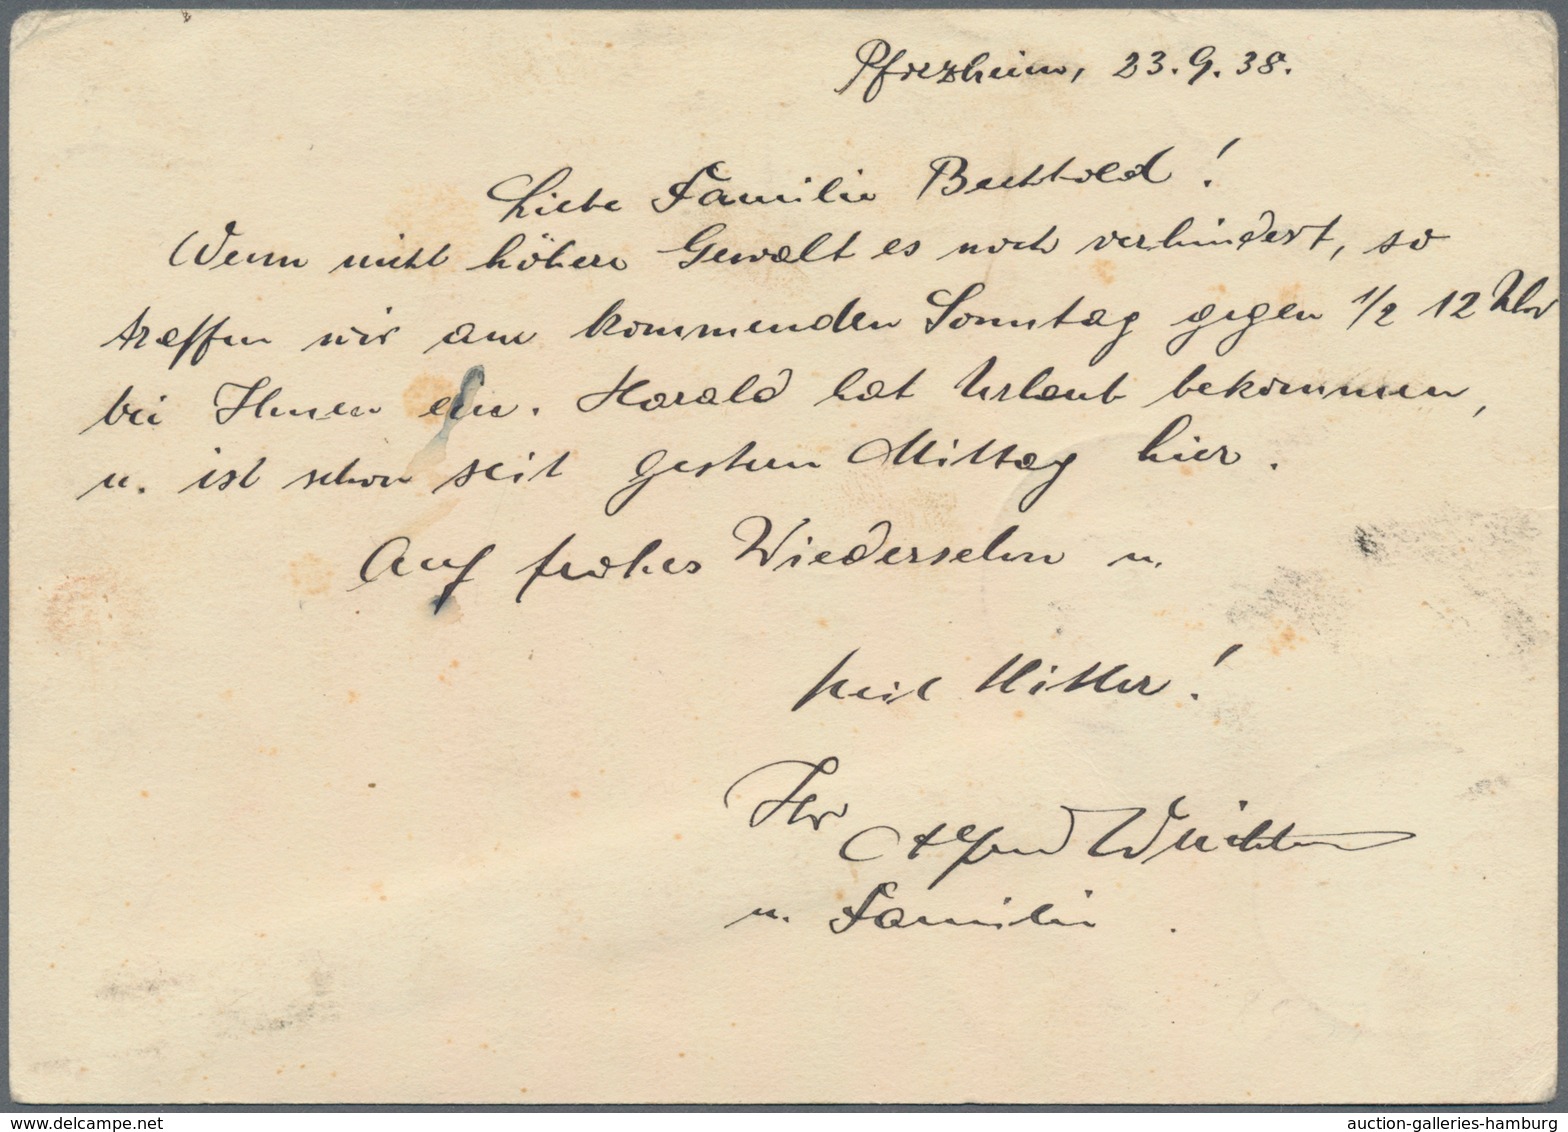 Pforzheim, 23.9.38.
Liebe Familie Bechtold!
Wenn nicht höhere Gewalt es noch verhindert, so
treffen wir am kommenden Sonntag gegen 1/2 12 Uhr
bei Ihnen ein. Harald hat Urlaub bekommen,
u. ist schon seit gestern Mittag hier.
Auf frohes Wiedersehn u.
Heil Hitler!
Ihr
Alfred
u. Familie.
delcampe.net
auction-galleries-hamburg